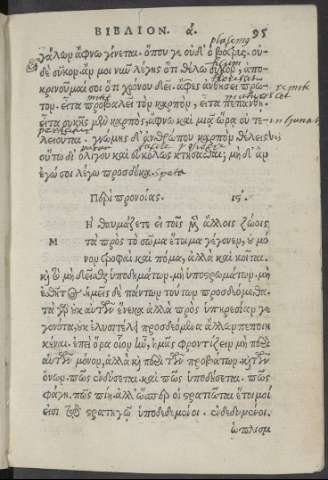 ΒΙΒΛΙΟΝ. ά. 95
γάλων ἄφνω γίνεται. ὅπου γε οὐδ' ὁ βότρυς. οὐ-
δὲ σῦκον. ἄν μοι νῦν λέγῃς ὅτι θέλω σῦκον, ἀπο-
κρινοῦμαί σοι ὅτι χρόνου δεῖ. ἄφες ἀνθήσῃ πρῶ-
τον. εἶτα προβάλῃ τὸν καρπὸν, εἶτα πεπανθῇ.
εἶτα συκῆς μὲν καρπὸς, ἄφνω καὶ μιᾷ ὥρᾳ οὐ τε-
λειοῦται. γνώμης δ' ἀνθρώπου καρπὸν θέλεις
οὕτω δι' ὀλίγου καὶ εὐκόλως κτήσασθαι; μὴ δ' ἂν
ἐγώ σοι λέγω προσδόκα.
Περὶ προνοίας. ις.
Μὴ θαυμάζετε εἰ τοῖς μὲν ἄλλοις ζώοις
τὰ πρὸς τὸ σῶμα ἕτοιμα γέγονεν, οὐ μό-
νον τροφαὶ καὶ πόμα, ἀλλὰ καὶ κοίτη.
καὶ τὸ μὴ δεῖσθαι ὑποδημάτων. μὴ ὑποστρωμάτων. μὴ
ἐσθῆτος. ἡμεῖς δὲ πάντων τούτων προσδεόμεθα.
τὰ γὰρ οὐκ αὐτῶν ἕνεκα ἀλλὰ πρὸς ὑπηρεσίαν γε
γονότα, οὐκ ἐλυσιτέλει προσδεόμενα ἄλλων πεποιη
κέναι. ἐπεὶ ὅρα οἷον ἦν, ἡμᾶς φροντίζειν μὴ περὶ
αὐτῶν μόνον, ἀλλὰ καὶ περὶ τῶν προβάτων. καὶ τῶν
ὄνων. πῶς ἐνδύσεται. καὶ πῶς ὑποδήσεται. πῶς
φάγῃ. πῶς πίῃ. ἀλλ' ὥσπερ οἱ στρατιῶται ἕτοιμοί
εἰσι τῷ στρατηγῷ ὑποδεδεμένοι. ἐνδεδυμένοι.
ὡπλισμ